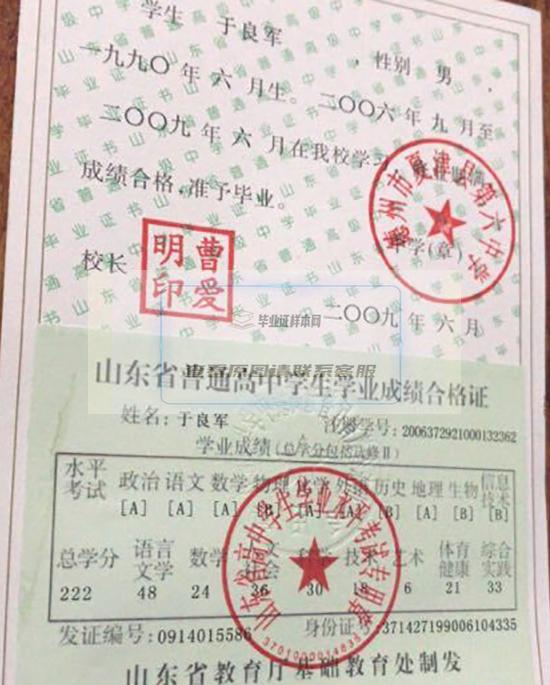 学生 于良军 ，性别 男，
一九九〇年六月生。二〇〇六年九月至
二〇〇九年六月在我校学习
成绩合格，准予毕业。
德州市夏津县第六中学
中学(章)
校长 曹爱明印
二〇〇九年六月
毕业证样本网
山东省普通高中学生学业成绩合格证
姓名：于良军 注册学号：2006372921000132362
学业成绩（总学分包括选修Ⅱ）
水平考试 政治 语文 数学 物理 化学 外语 历史 地理 生物 信息技术
[A] [A] [A] [B] [A] [B] [A] [B] [B]
总学分 语言文学 数学 技术 艺术 体育健康 综合实践
222 48 24 36 30 18 6 21 33
发证编号：0914015586 身份证号：371427199006104335
山东省教育厅基础教育处制发